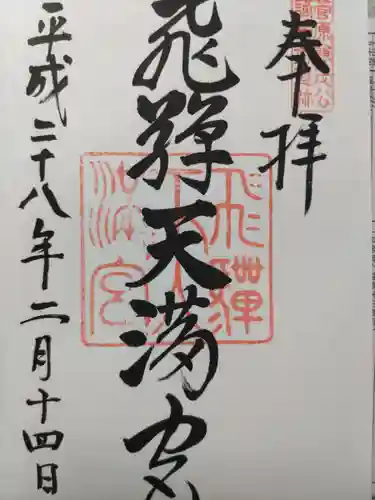 奉拝
飛騨天満宮
飛騨天満宮
平成二十八年二月十四日